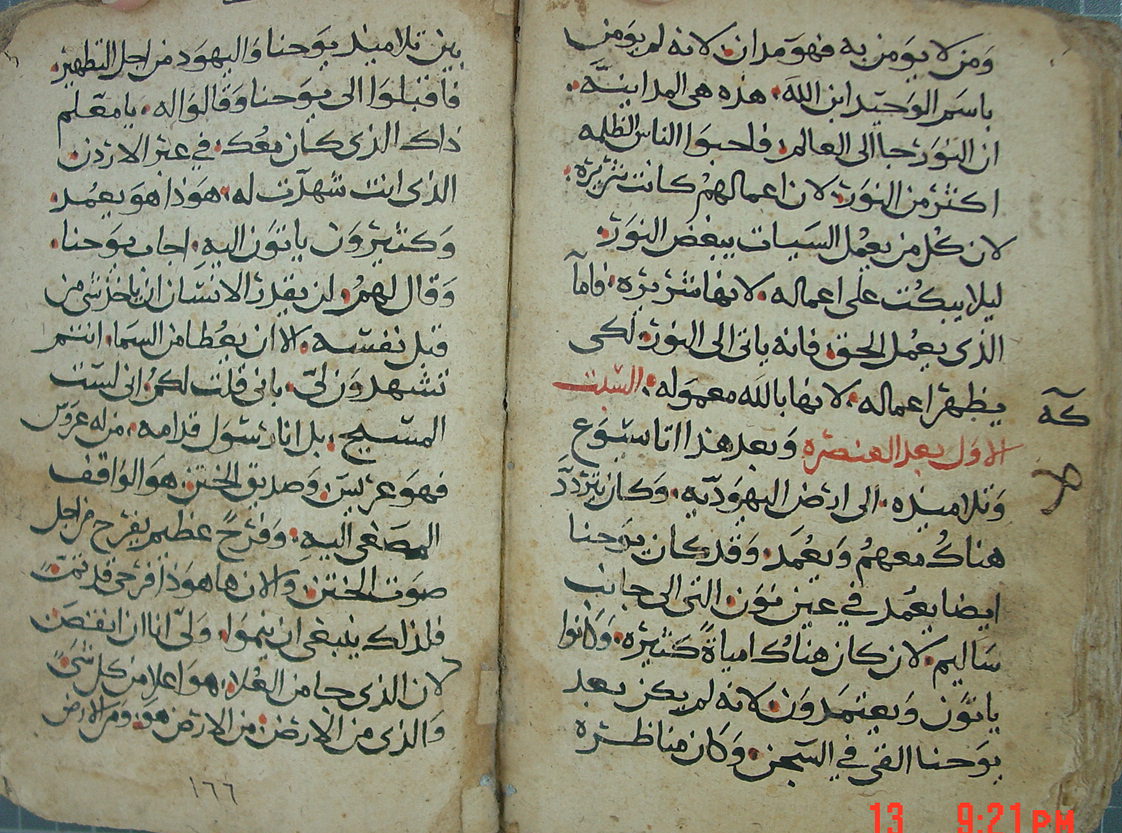 ومن لا يومن به فهو مدان، لانه لم يومن
باسم الوحيد ابن الله، هذه هي المداينه،
ان النور جا الى العالم، فاحبوا الناس الظلمه
اكثر من النور، لان اعمالهم كانت شريره،
لان كل من يعمل السيات يبغض النور،
ليلا يبكت على اعماله، لانها شريره، فاما
الذي يعمل الحق، فانه ياتي الى النور، لكي
يظهر اعماله، لانها بالله معموله، السبت
الاول بعد العنصره وبعد هذا اتا يسوع
كه
وتلاميذه، الى ارض اليهوديه، وكان يتردد
هناك معهم ويعمد، وقد كان يوحنا
ايضا يعمد في عين نون، التي الى جانب
ساليم، لان كان هناك امياة كثيره، وكانوا
ياتون ويعتمدون، لانه لم يكن بعد
يوحنا القي في السجن، وكان مناظره
بين تلاميذ يوحنا واليهود من اجل التطهير،
فاقبلوا الى يوحنا وقالوا له، يا معلم
ذاك الذي كان معك، في عبر الاردن،
الذي انت شهدت له، هوذا هو يعمد،
وكثيرون ياتون اليه، اجاب يوحنا،
وقال لهم، لن يقدر الانسان ان ياخذ شي من
قبل نفسه، الا ان يعطا من السما، انتم
تشهدون لي، باني قلت لكم، اني لست
المسيح، بل انا رسول قدامه، من له عروس
فهو عريس، وصديق الختن، هو الواقف
المصغي اليه، وفرح عظيم يفرح من اجل
صوت الختن، والان ها هوذا فرحي قد تمت،
فلذلك ينبغي ان ينموا، ولي انا ان انقص،
لان الذي جا من العلا، هو اعلا من كل شي،
والذي من الارض، من الارض هو، ومن الارض
١٦٦
13 9:21 PM